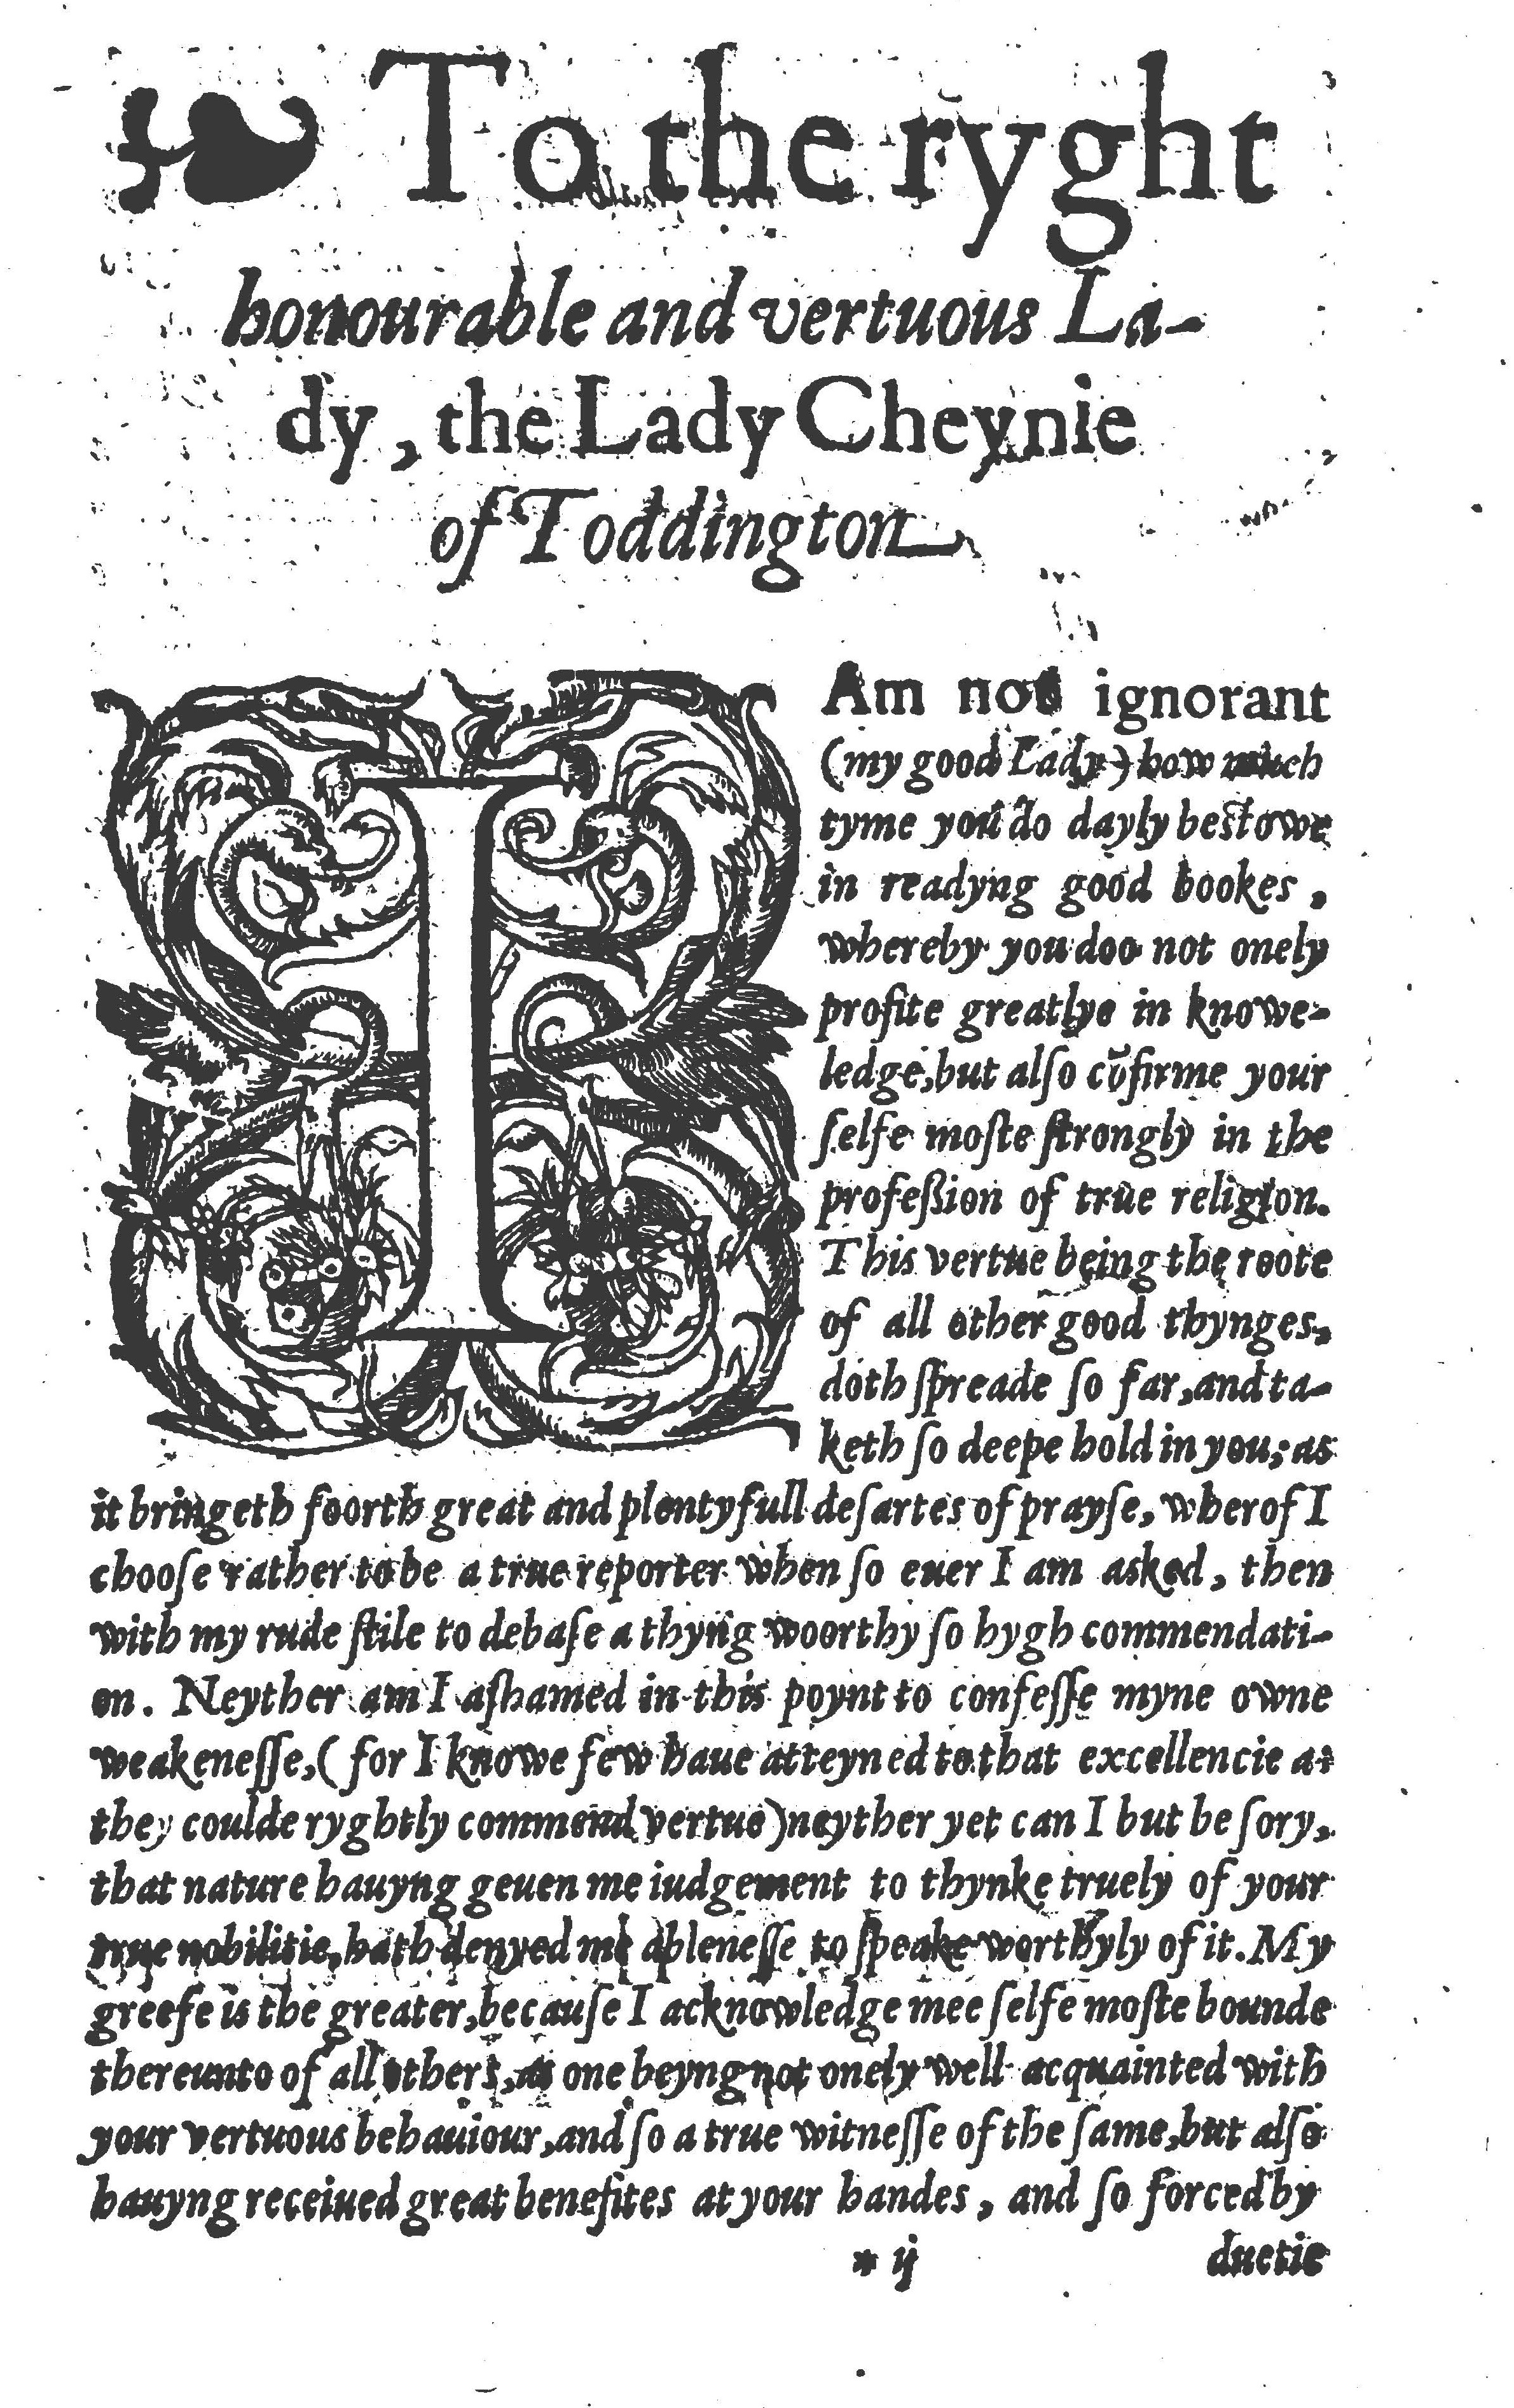 ❧ To the ryght
honourable and vertuous La-
dy, the Lady Cheynie
of Toddington
I Am not ignorant
(my good Lady) how much
tyme you do dayly bestowe
in readyng good bookes,
whereby you doo not onely
profite greatlye in knowe-
ledge, but alſo cõfirme your
ſelfe moſte ſtrongly in the
profeßion of true religion.
This vertue being the roote
of all other good thynges,
doth ſpreade ſo far, and ta-
keth ſo deepe hold in you; as
it bringeth foorth great and plentyfull deſartes of prayſe, wherof I
chooſe rather to be a true reporter when ſo euer I am asked, then
with my rude ſtile to debaſe a thyng woorthy ſo hygh commendati-
on. Neyther am I aſhamed in this poynt to confeſſe myne owne
weakeneſſe, (for I knowe few haue atteyned to that excellencie as
they coulde ryghtly commend vertue) neyther yet can I but be ſory,
that nature hauyng geuen me iudgement to thynke truely of your
true nobilitie, hath denyed me ableneſſe to ſpeake worthyly of it. My
greefe is the greater, becauſe I acknowledge mee ſelfe moſte bounde
thereunto of all others, as one beyng not onely well acquainted with
your vertuous behauiour, and ſo a true witneſſe of the ſame, but alſo
hauyng receiued great benefites at your handes, and ſo forced by
* ij duetie